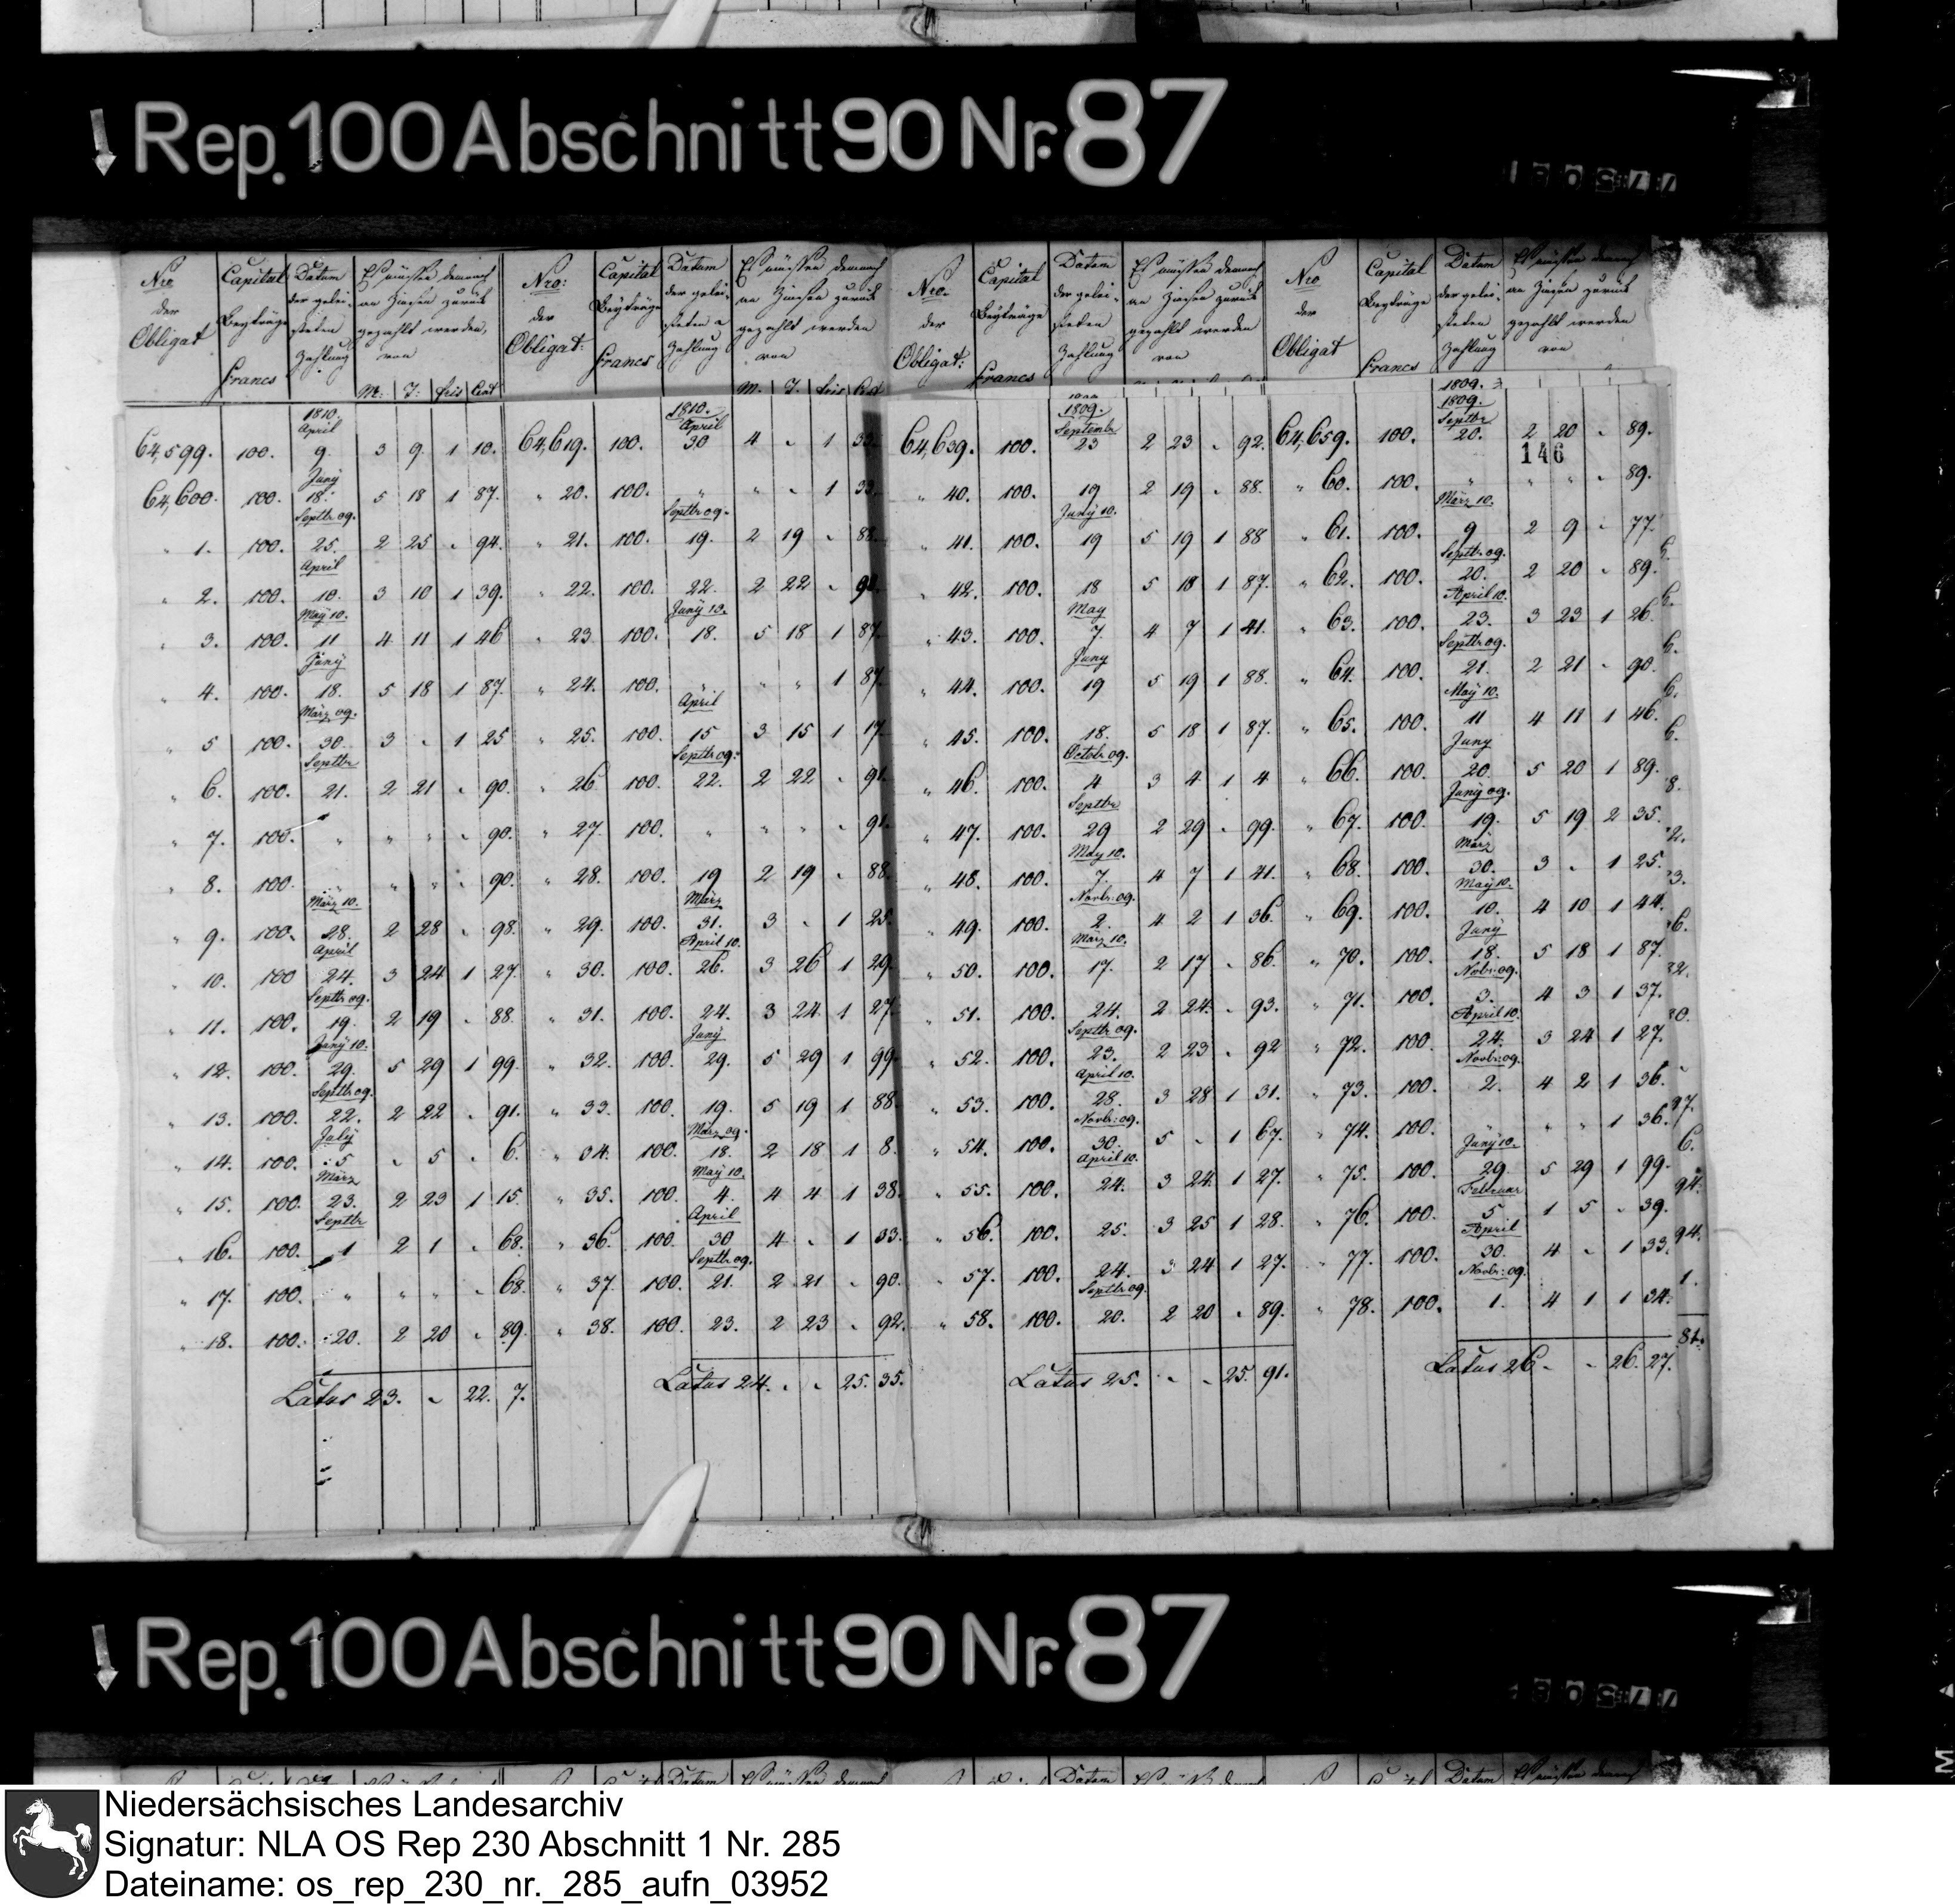 Rep. 100 Abschnitt 90 Nr. 87
Nro der Obligat | Capital Beyträge Francs | Datum der geleisteten Zahlung | Es müssen demnach an Zinsen zurück gezahlt werden, von M: T: frcs Cent
64,599. 100. 1810. April 9. 3 9 1 10.
64,600. 100. Juny 18. 5 18 1 87.
" 1. 100. Septbr 09. 25. 2 25 " 94.
" 2. 100. April 10. 3 10 1 39.
" 3. 100. May 10. 11 4 11 1 46
" 4. 100. Juny 18. 5 18 1 87.
" 5 100. März 09. 30. 3 " 1 25
" 6. 100. Septbr 21. 2 21 " 90.
" 7. 100. " " " " 90.
" 8. 100. " " " " 90.
" 9. 100. März 10. 28. 2 28 " 98.
" 10. 100 April 24. 3 24 1 27.
" 11. 100. Septbr 09. 19. 2 19 " 88.
" 12. 100. Juny 10. 29. 5 29 1 99.
" 13. 100. Septbr 09. 22. 2 22 " 91.
" 14. 100. July 5 " 5 " 6.
" 15. 100. März 23. 2 23 1 15.
" 16. 100. Septbr 1 2 1 " 68.
" 17. 100. " " " " 68.
" 18. 100. 20. 2 20 " 89.
Latus 23. " 22. 7.
Nro: der Obligat: | Capital Beyträge Francs | Datum der geleisteten Zahlung | Es müssen demnach an Zinsen zurück gezahlt werden von M. T. frcs
64,619. 100. 1810. April 30 4 " 1 33.
" 20. 100. " " " 1 33.
" 21. 100. Septbr 09. 19. 2 19 " 88.
" 22. 100. 22. 2 22 "
" 23 100. Juny 10. 18. 5 18 1 87.
" 24. 100. " " " 1 87.
" 25. 100. April 15 3 15 1 17.
" 26 100. Septbr 09. 22. 2 22 " 91.
" 27. 100. " " " " 91.
" 28. 100. 19 2 19 " 88.
" 29. 100. März 31. 3 " 1 25.
" 30. 100. April 10. 26. 3 26 1 29.
" 31. 100. 24. 3 24 1 27.
" 32. 100. Juny 29. 5 29 1 99.
" 33. 100. 19. 5 19 1 88.
" 34. 100. März 09. 18. 2 18 1 8.
" 35. 100. May 10. 4. 4 4 1 38.
" 36. 100. April 30 4 " 1 33.
" 37. 100. Septbr 09. 21. 2 21 " 90.
" 38. 100. 23. 2 23 " 92.
Latus 24. " " 25. 35.
Nro. der Obligat: | Capital Beyträge Francs | Datum der geleisteten Zahlung | Es müssen demnach an Zinsen zurück gezahlt werden von
64,639. 100. 1809. Septembr 23 2 23 " 92.
" 40. 100. 19 2 19 " 88.
" 41. 100. Juny 10. 19 5 19 1 88
" 42. 100. 18 5 18 1 87.
" 43. 100. May 7 4 7 1 41.
" 44. 100. Juny 19 5 19 1 88.
" 45. 100. 18. 5 18 1 87.
" 46. 100. Octobr 09. 4 3 4 1 4
" 47. 100. Septbr 29 2 29 " 99.
" 48. 100. May 10. 7. 4 7 1 41.
" 49. 100. Novbr: 09. 2. 4 2 1 36.
" 50. 100. März 10. 17. 2 17 " 86.
" 51. 100. 24. 2 24. " 93.
" 52. 100. Septbr 09. 23. 2 23 " 92
" 53. 100. April 10. 28. 3 28 1 31.
" 54. 100. Novbr: 09. 30. 5 " 1 67.
" 55. 100. April 10. 24. 3 24 1 27.
" 56. 100. 25. 3 25 1 28.
" 57. 100. 24. 3 24 1 27.
" 58. 100. Septbr 09. 20. 2 20 " 89.
Latus 25. " " 25. 91.
Nro der Obligat | Capital Beyträge Francs | Datum der geleisteten Zahlung | Es müssen demnach an Zinsen zurück gezahlt werden von
1809.
64,659. 100. 1809. Septbr 20. 2 20 " 89.
146
" 60. 100. " " " " 89.
" 61. 100. März 10. 9 2 9 " 77.
" 62. 100. Septbr 09. 20. 2 20 " 89.
" 63. 100. April 10. 23. 3 23 1 26.
" 64. 100. Septbr 09. 21. 2 21 " 90.
" 65. 100. May 10. 11 4 11 1 46.
" 66. 100. Juny 20. 5 20 1 89.
" 67. 100. Juny 09. 19. 5 19 2 35.
" 68. 100. März 30. 3 " 1 25.
" 69. 100. May 10. 10. 4 10 1 44.
" 70. 100. Juny 18. 5 18 1 87.
" 71. 100. Nobr: 09. 3. 4 3 1 37.
" 72. 100. April 10. 24. 3 24 1 27.
" 73. 100. Novbr: 09. 2. 4 2 1 36.
" 74. 100. " " " 1 36.
" 75. 100. Juny 10. 29. 5 29 1 99.
" 76. 100. Februar 5 1 5 " 39.
" 77. 100. April 30. 4 " 1 33.
" 78. 100. Novbr: 09. 1. 4 1 1 34.
Latus 26 " " 26. 27.
Rep. 100 Abschnitt 90 Nr. 87
Niedersächsisches Landesarchiv
Signatur: NLA OS Rep 230 Abschnitt 1 Nr. 285
Dateiname: os_rep_230_nr._285_aufn_03952